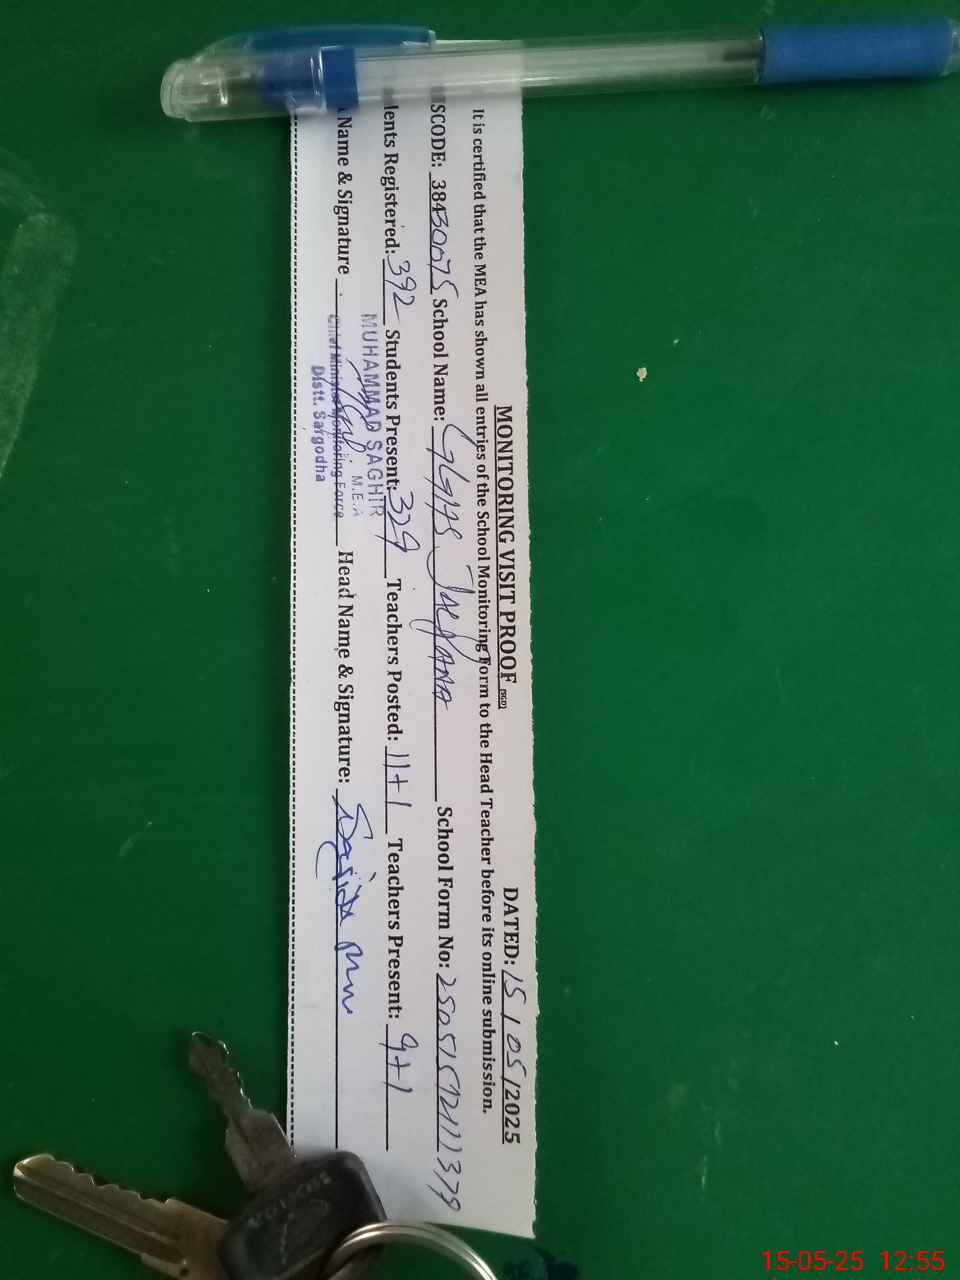 MONITORING VISIT PROOF (SGD) DATED: 15/05/2025
It is certified that the MEA has shown all entries of the School Monitoring Form to the Head Teacher before its online submission.
SCODE: 38430075 School Name: GGHS School Form No:
lents Registered: 392 Students Present: 329 Teachers Posted: 11+1 Teachers Present: 9+1
MUHAMMAD SAGHIR
M.E.A
Name & Signature Head Name & Signature:
Chief Minister Monitoring Force
Distt. Sargodha
15-05-25 12:55